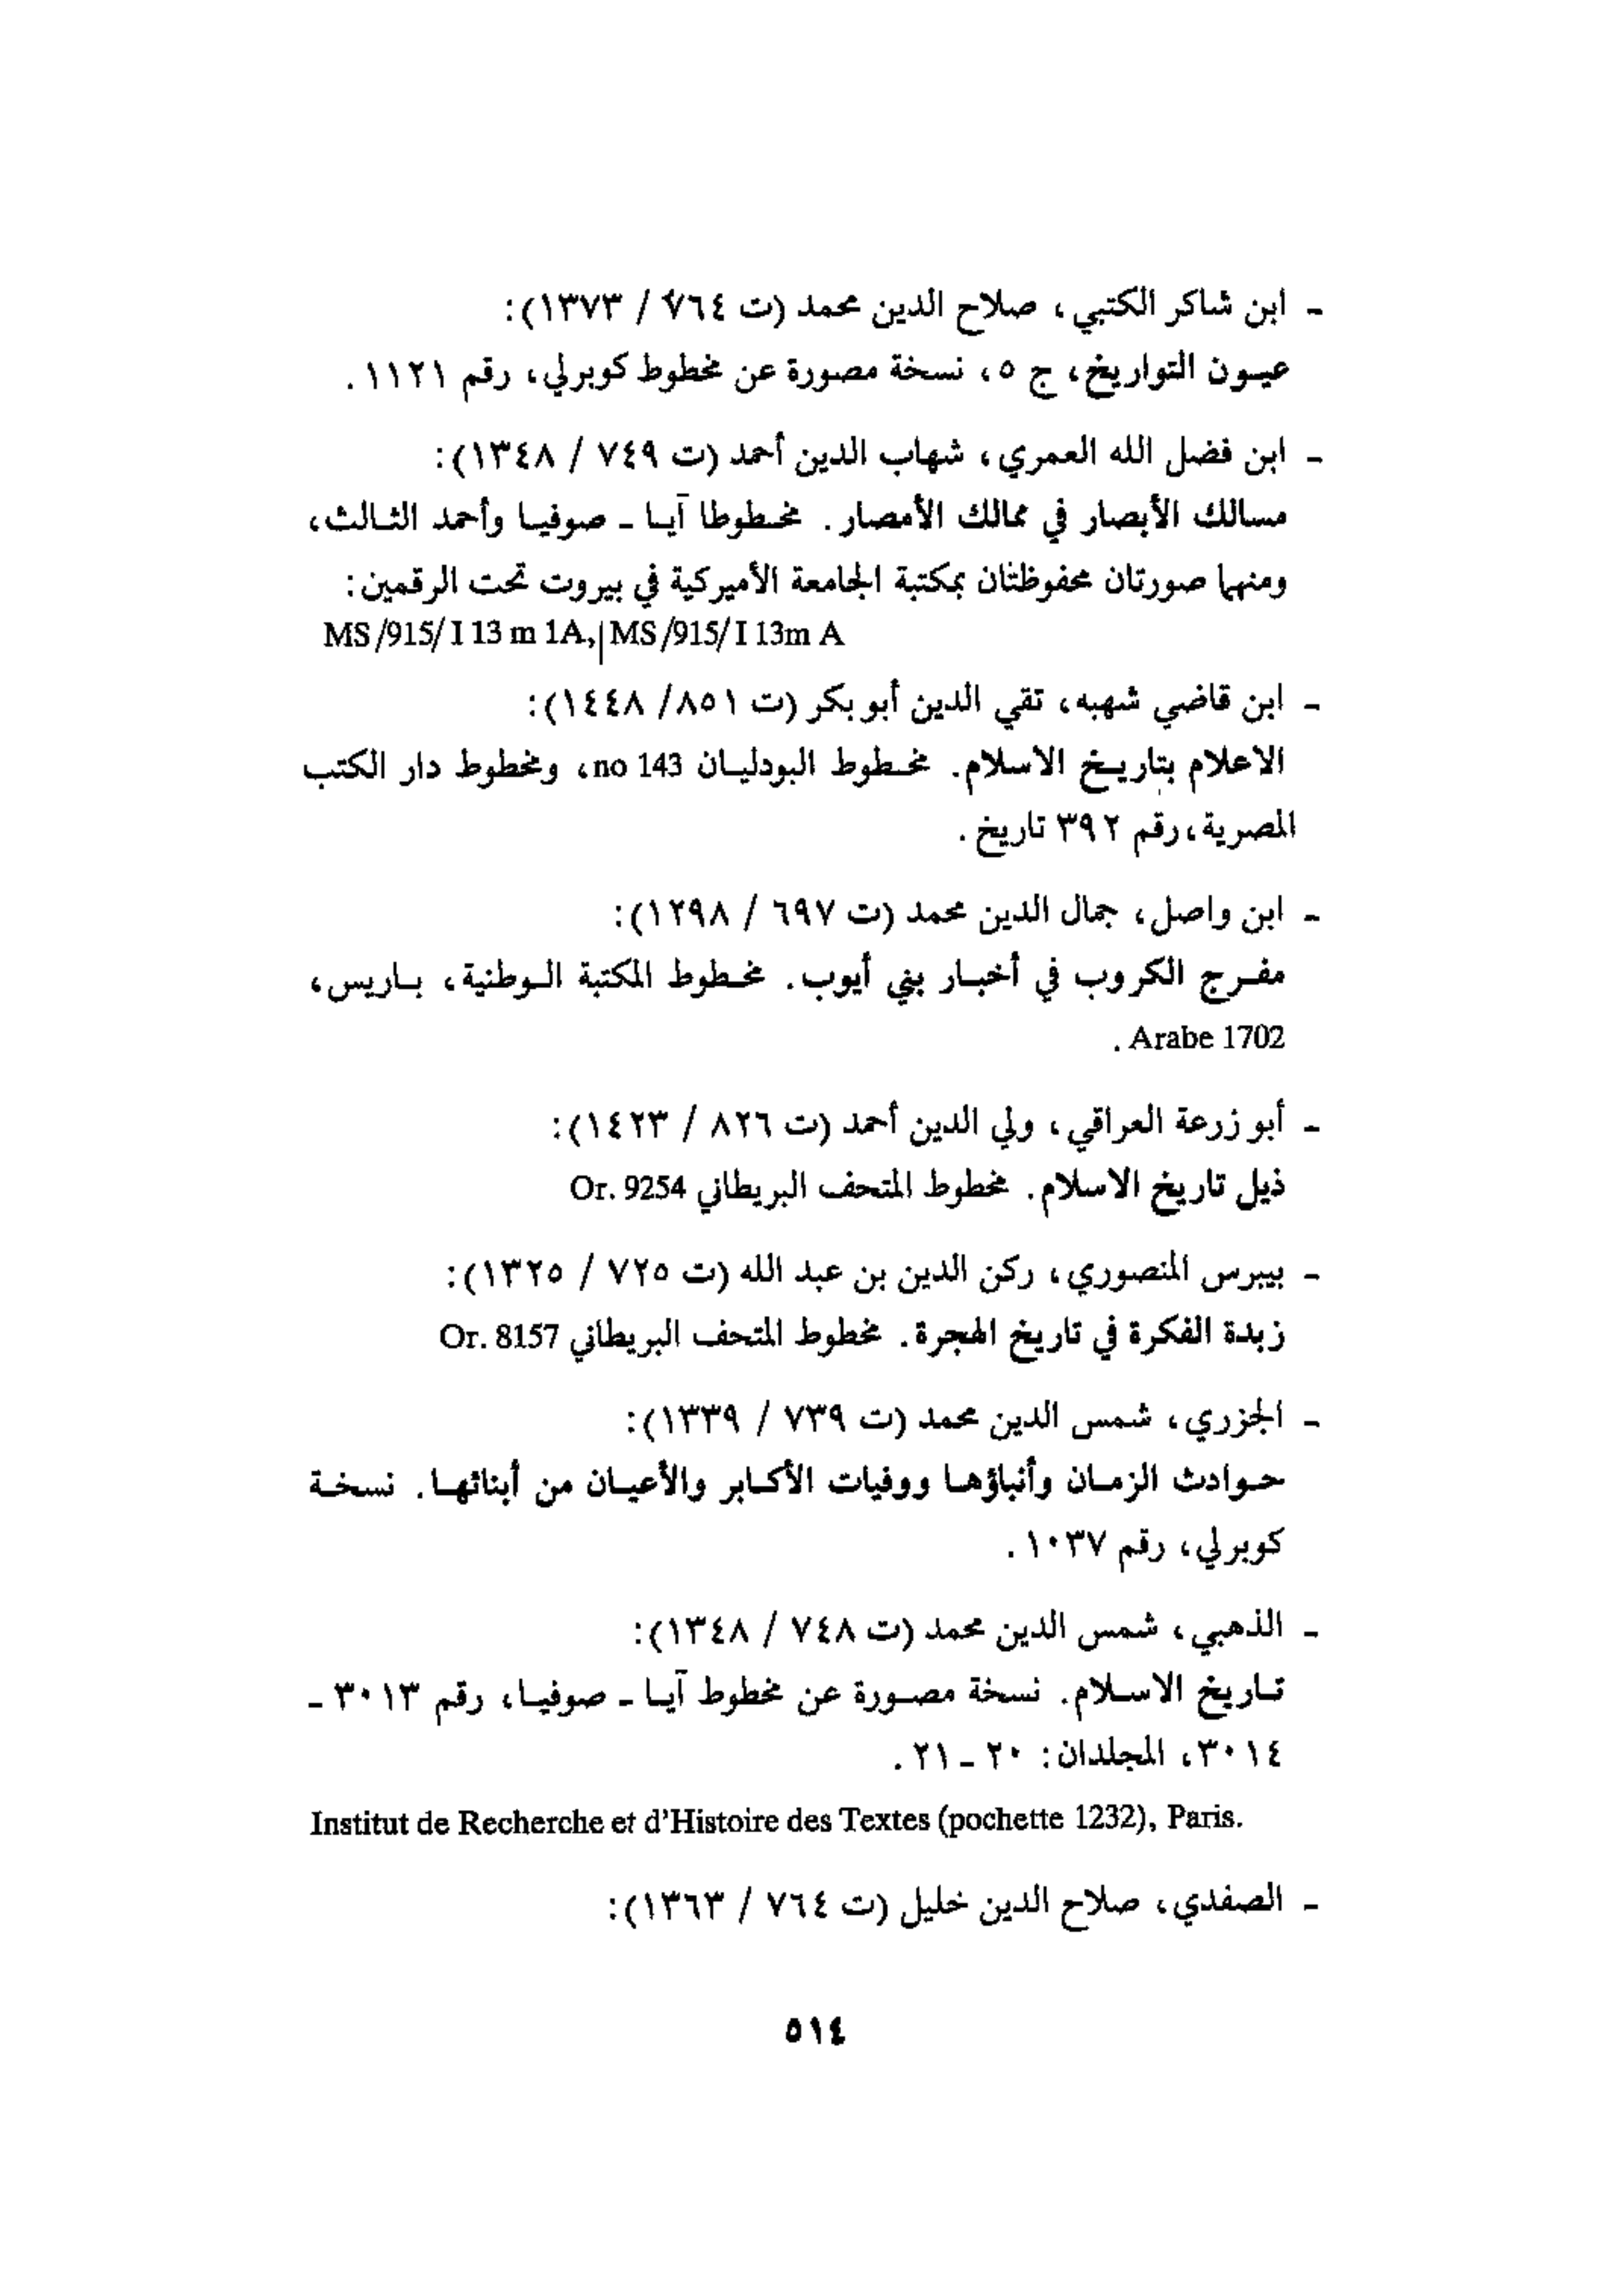 ـ ابن شاكر الكتبي، صلاح الدين محمد (ت ٧٦٤ / ١٣٧٣):
عيون التواريخ، ج ٥، نسخة مصورة عن مخطوط كوبرلي، رقم ١١٢١.
ـ ابن فضل الله العمري، شهاب الدين أحمد (ت ٧٤٩ / ١٣٤٨):
مسالك الأبصار في ممالك الأمصار. مخطوطا آيا ـ صوفيا وأحمد الثالث،
ومنهما صورتان محفوظتان بمكتبة الجامعة الأميركية في بيروت تحت الرقمين:
MS/915/ I 13 m 1A, MS/915/ I 13m A
ـ ابن قاضي شهبه، تقي الدين أبو بكر (ت ٨٥١/ ١٤٤٨):
الاعلام بتاريخ الاسلام. مخطوط البودليان no 143، ومخطوط دار الكتب
المصرية، رقم ٣٩٢ تاريخ.
ـ ابن واصل، جمال الدين محمد (ت ٦٩٧ / ١٢٩٨):
مفرج الكروب في أخبار بني أيوب. مخطوط المكتبة الوطنية، باريس،
Arabe 1702 .
ـ أبو زرعة العراقي، ولي الدين أحمد (ت ٨٢٦ / ١٤٢٣):
ذيل تاريخ الاسلام. مخطوط المتحف البريطاني Or. 9254
ـ بيبرس المنصوري، ركن الدين بن عبد الله (ت ٧٢٥ / ١٣٢٥):
زبدة الفكرة في تاريخ الهجرة. مخطوط المتحف البريطاني Or. 8157
ـ الجزري، شمس الدين محمد (ت ٧٣٩ / ١٣٣٩):
حوادث الزمان وأنباؤها ووفيات الأكابر والأعيان من أبنائها. نسخة
كوبرلي، رقم ١٠٣٧.
ـ الذهبي، شمس الدين محمد (ت ٧٤٨ / ١٣٤٨):
تاريخ الاسلام. نسخة مصورة عن مخطوط آيا ـ صوفيا، رقم ٣٠١٣ ـ
٣٠١٤، المجلدان: ٢٠ ـ ٢١.
Institut de Recherche et d'Histoire des Textes (pochette 1232), Paris.
ـ الصفدي، صلاح الدين خليل (ت ٧٦٤ / ١٣٦٣):
٥١٤